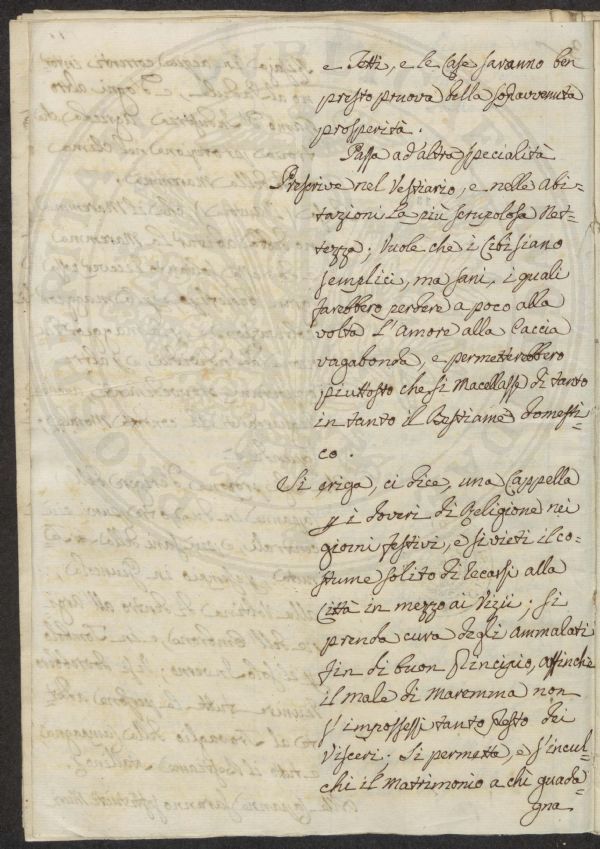 e Tetti, e le Case saranno ben
presto pruova della sopravvenuta
prosperità.
Passa ad'altra specialità
Prescrive nel Vestiario, e nelle Abi=
tazioni la più scrupolosa Net=
tezza; Vuole che i Cibi siano
semplici, ma sani, i quali
farebbero perdere a poco alla
volta l'Amore alla Caccia
vagabonda, e permetterebbero
piuttosto che si Macellassi di tanto
in tanto il Bestiame domesti=
co.
Si eriga, ci dice, una Cappella
i doveri di Religione nei
giorni festivi, e si vieti il co=
stume solito di recarsi alla
Città in mezzo ai Vizii; Si
prenda cura degli ammalati
fin di buon Principio, affinchè
il male di Maremma non
s'impossessi tanto presto dei
Visceri; Si permetta, e s'incul=
chi il Matrimonio a chi guada=
gna